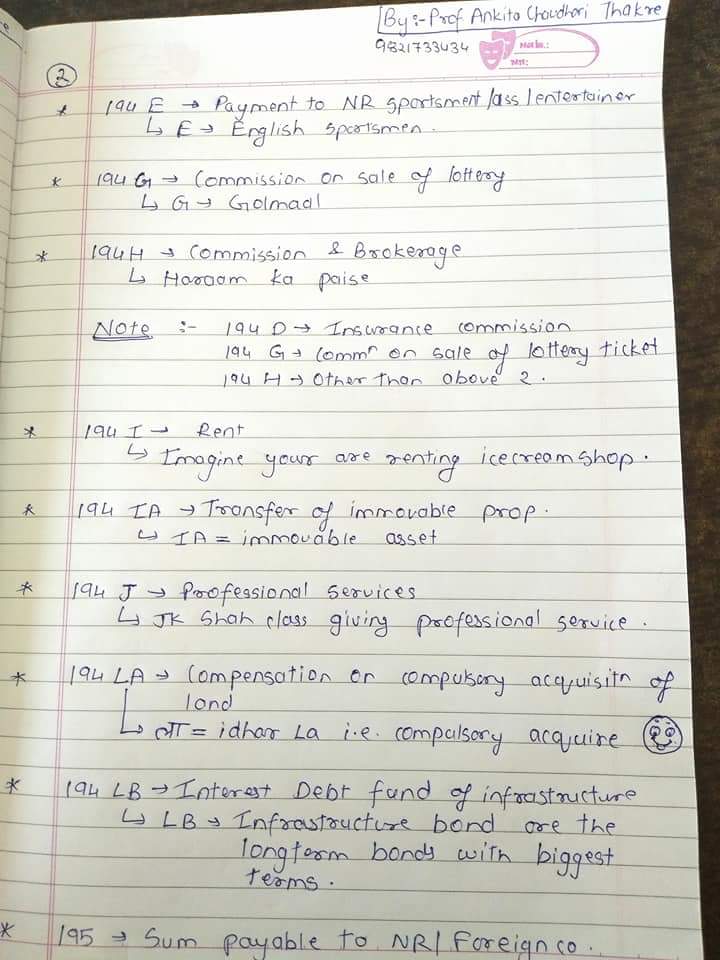 By:- Prof Ankita Chaudhari Thakre
9821733434
②
* 194 E → Payment to NR sportsment/ass/entertainer
↳ E → English sportsmen.
* 194 G → Commission on sale of lottery
↳ G → Golmaal
* 194H → Commission & Brokerage
↳ Haraam ka paise
Note :- 194 D → Insurance commission
194 G → Commⁿ on sale of lottery ticket
194 H → Other than above 2.
* 194 I → Rent
↳ Imagine your are renting icecream shop.
* 194 IA → Transfer of immovable prop.
↳ IA = immovable asset
* 194 J → Professional services
↳ JK Shah class giving professional service.
* 194 LA → Compensation on compulsory acquisitn of
land
↳ ला = idhar La i.e. compulsory acquire
* 194 LB → Interest Debt fund of infrastructure
↳ LB → Infrastructure bond are the
longterm bonds with biggest
terms.
* 195 → Sum payable to NR/Foreign co.